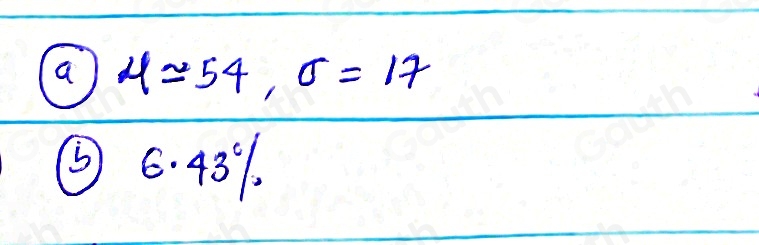 (a) μ ≃ 54, σ = 17
(b) 6.43%